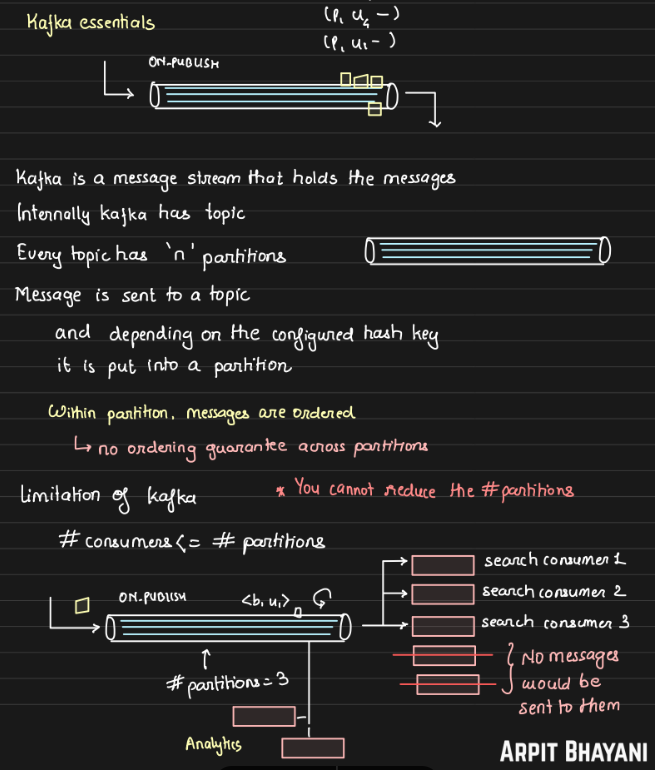 Kafka essentials
(P, U4 -)
(P, U1 - )
ON-PUBLISH
Kafka is a message stream that holds the messages
Internally kafka has topic
Every topic has 'n' partitions
Message is sent to a topic
and depending on the configured hash key
it is put into a partition
Within partition, messages are ordered
↳ no ordering guarantee across partitions
Limitation of kafka
* You cannot reduce the # partitions
# consumers <= # partitions
ON-PUBLISH
<b, u1>
search consumer 1
search consumer 2
search consumer 3
No messages
would be
sent to them
# partitions = 3
Analytics
ARPIT BHAYANI